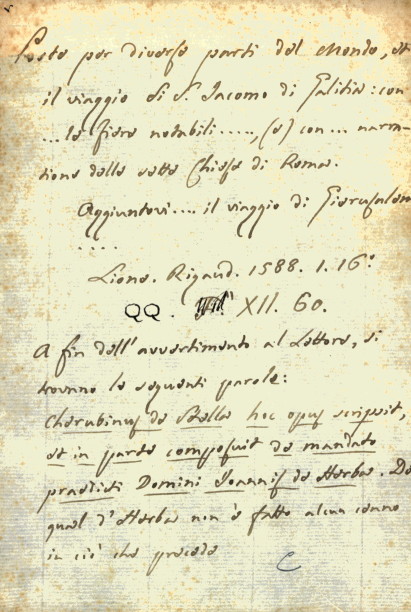 Poste per diverse parti del Mondo, et
il viaggio di S. Iacomo di Galitia: con
... le fiere notabili ....., (e) con ... narra-
tione delle sette Chiese di Roma.
Aggiuntovi .... il viaggio di Gierusalem
....
Lione. Rigaud. 1588. 1. 16°
QQ. XII. 60.
A fin dell'avvertimento al Lettore, si
trovano le seguenti parole:
Cherubinus de Stella hoc opus scripsit,
et in parte composuit de mandato
praedicti Domini Joannis de Herba. Del
qual d'Herba non è fatto alcun cenno
in ciò che precede